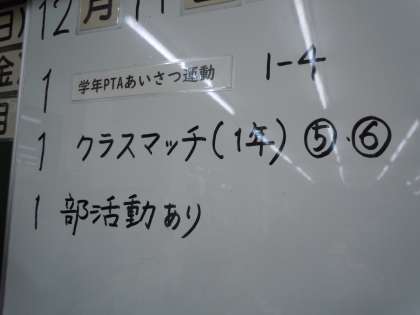 12月
学年PTAあいさつ運動 1-4
1 クラスマッチ(1年) ⑤・⑥
1 部活動あり